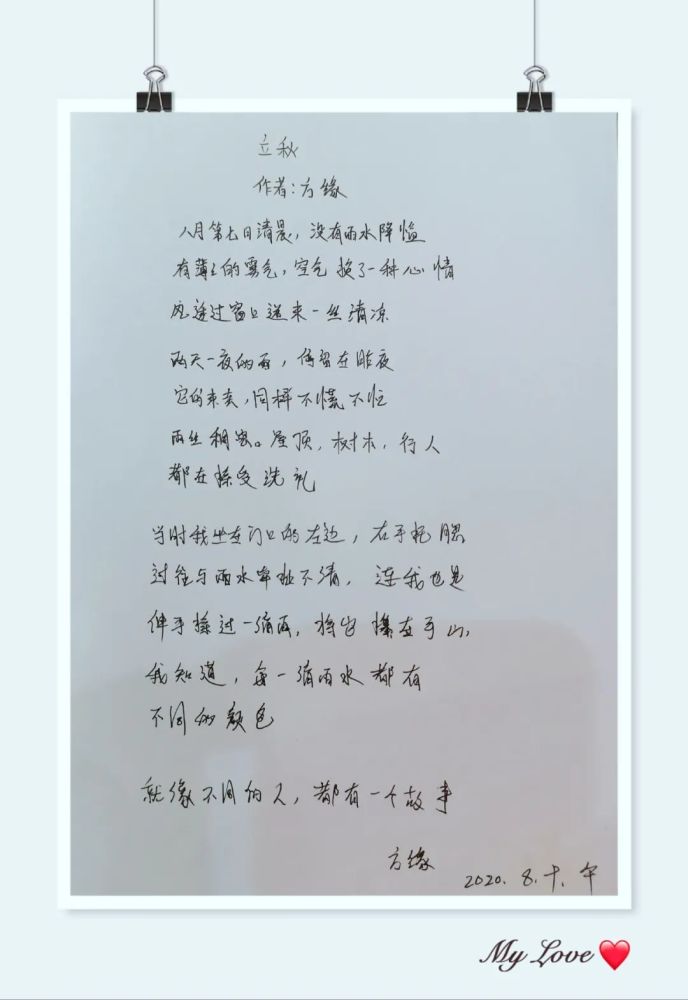 立秋
作者：方缘
八月第七日清晨，没有雨水降临
有薄薄的雾气，空气换了一种心情
风途过窗口送来一丝清凉
两天一夜的雨，停留在昨夜
它的来去，同样不慌不忙
雨丝稠密。屋顶，树木，行人
都在接受洗礼
当时我坐在门口的左边，右手托腮
过往与雨水牵扯不清，连我也是
伸手接过一滴雨，将它攥在手心，
我知道，每一滴雨水都有
不同的颜色
就像不同的人，都有一个故事
方缘
2020.8.十.午
My Love